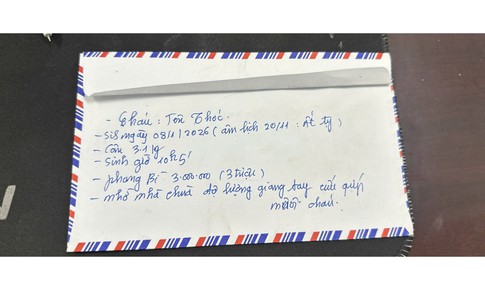 - Cháu : Tôn Thóc.
- SiS ngày 08/1/2026 (âm lịch 20/11 : Ất tỵ)
- Cân 3.1 kg
- Sinh giờ 10h5'
- phong Bì 3.000.000 (3 triệu)
- nhờ nhà chùa độ lượng giang tay cứu giúp
cháu.